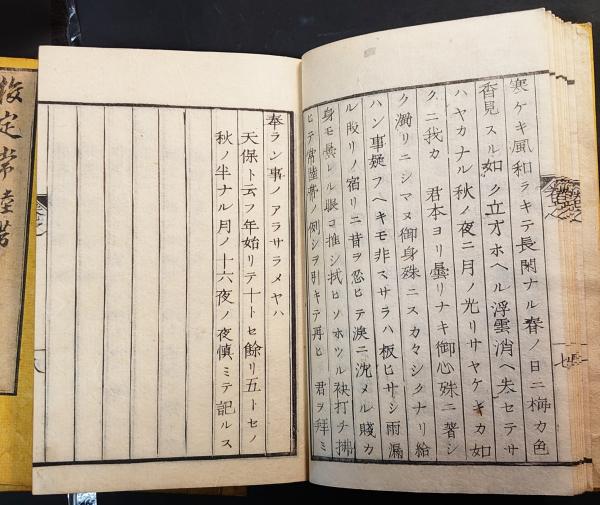 寒ケキ風和ラキテ長閑ナル春ノ日ニ梅カ色
香見スル如ク立オホヘル浮雲消ヘ失セテサ
ハヤカナル秋ノ夜ニ月ノ光リサヤケキカ如
クニ我カ 君本ヨリ曇リナキ御心殊ニ著シ
ク濁リニシマヌ御身殊ニスカ々シクナリ給
ハン事疑フヘキモ非スサラハ板ヒサシ雨漏
ル賤リノ宿リニ昔ヲ忍ヒテ涙ニ沈メル賤カ
身モ曇レル眼コ推シ拭ヒソホツル袂打チ拂
ヒテ常陸帯ノ例シヲ引キテ再ヒ 君ヲ拜ミ
奉ラン事ノアラサラメヤハ
天保ト云フ年始リテ十トセ餘リ五トセノ
秋ノ半ナル月ノ十六夜ノ夜慎ミテ記ルス
校定常陸帯
七
八